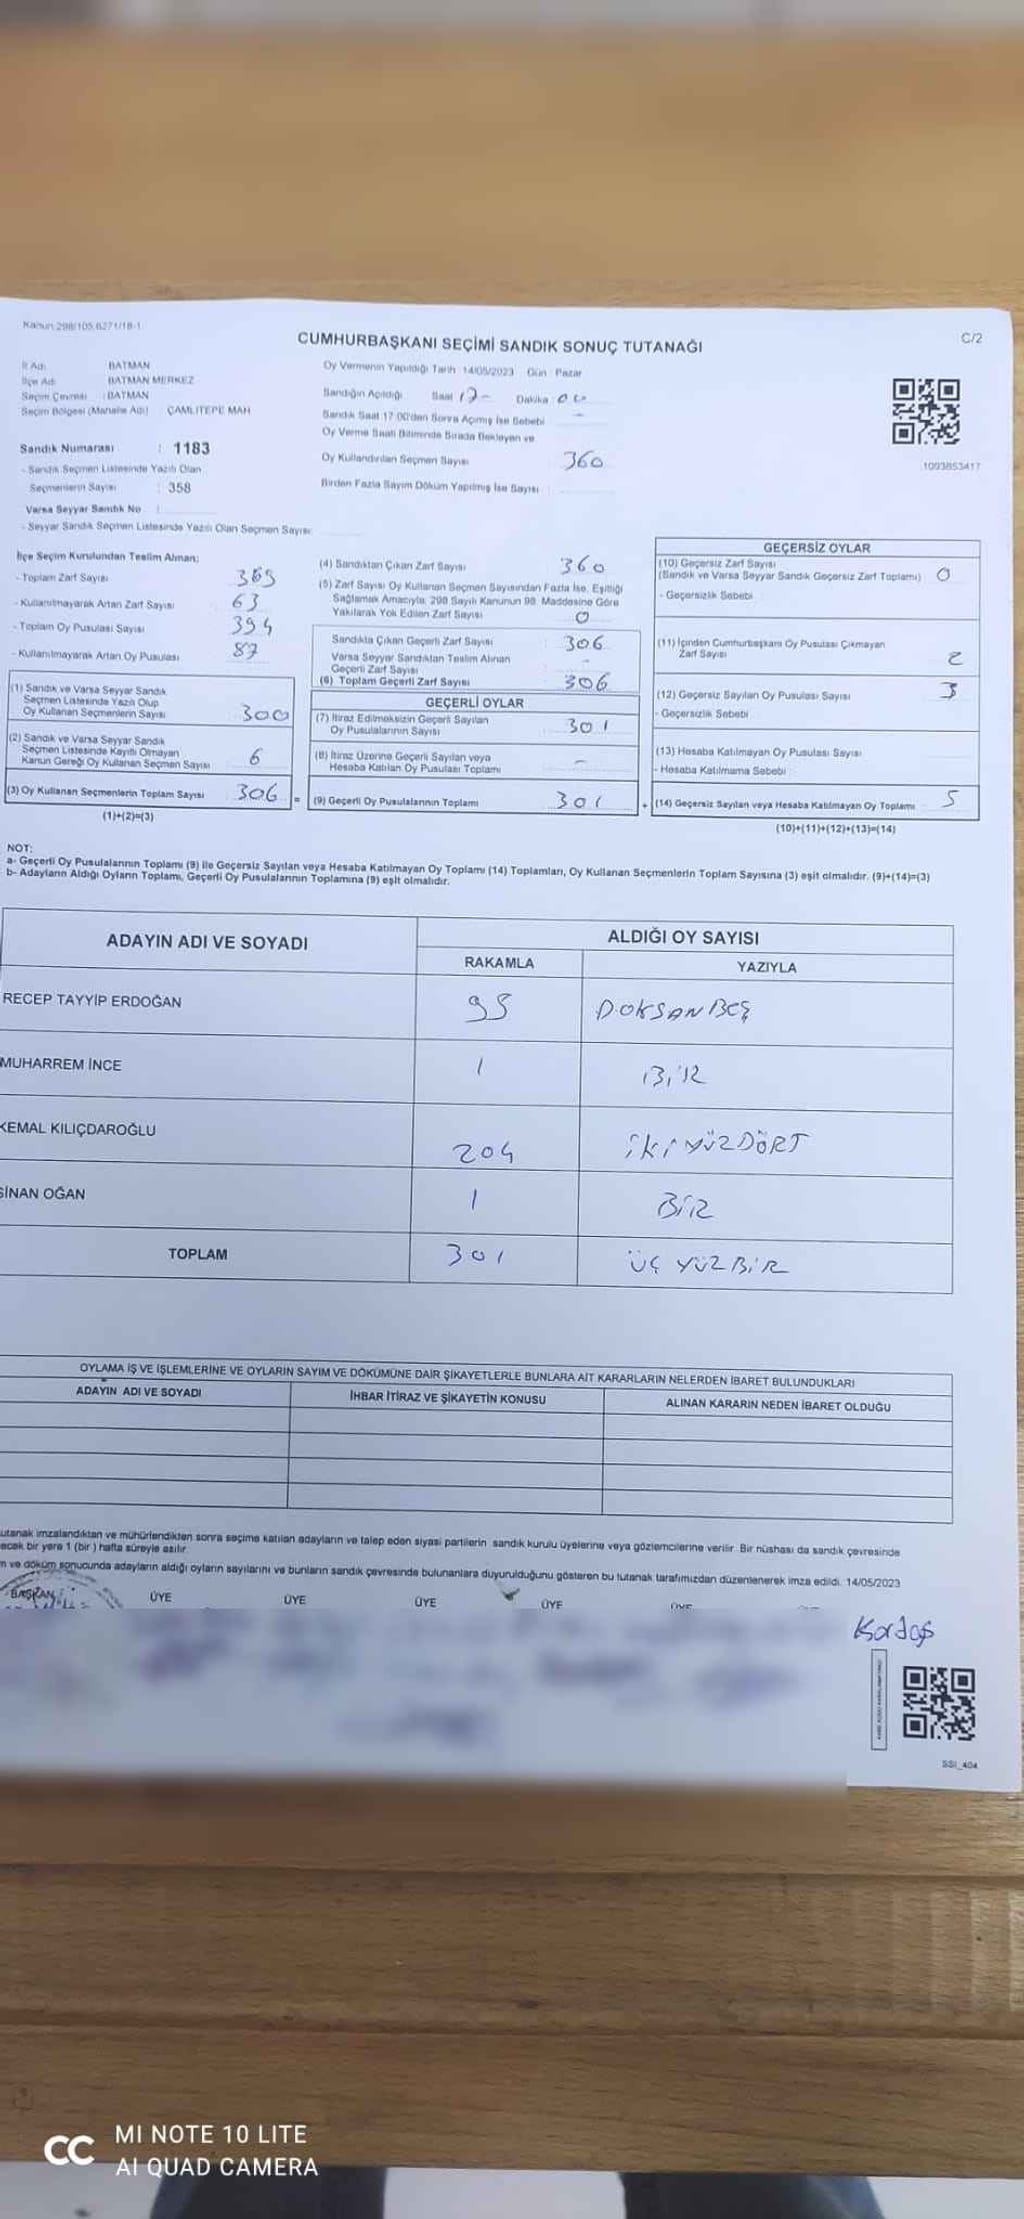 Kanun:298/105,6271/18-1
C/2
CUMHURBAŞKANI SEÇİMİ SANDIK SONUÇ TUTANAĞI
İl Adı BATMAN
İlçe Adı BATMAN MERKEZ
Seçim Çevresi : BATMAN
Seçim Bölgesi (Mahalle Adı) ÇAMLITEPE MAH
Oy Vermenin Yapıldığı Tarih : 14/05/2023 Gün : Pazar
Sandığın Açıldığı Saat 17- Dakika : 00
Sandık Saat 17:00'den Sonra Açımış İse Sebebi -
Oy Verme Saati Bitiminde Sırada Bekleyen ve
Oy Kullandırılan Seçmen Sayısı 360
Birden Fazla Sayım Döküm Yapılmış İse Sayısı :
1003853417
Sandık Numarası : 1183
- Sandık Seçmen Listesinde Yazılı Olan
Seçmenlerin Sayısı : 358
Varsa Seyyar Sandık No :
- Seyyar Sandık Seçmen Listesinde Yazılı Olan Seçmen Sayısı:
İlçe Seçim Kurulundan Teslim Alınan;
- Toplam Zarf Sayısı 369
- Kullanılmayarak Artan Zarf Sayısı 63
- Toplam Oy Pusulası Sayısı 394
- Kullanılmayarak Artan Oy Pusulası 87
(1) Sandık ve Varsa Seyyar Sandık
Seçmen Listesinde Yazılı Olup
Oy Kullanan Seçmenlerin Sayısı 300
(2) Sandık ve Varsa Seyyar Sandık
Seçmen Listesinde Kayıtlı Olmayan
Kanun Gereği Oy Kullanan Seçmen Sayısı 6
(3) Oy Kullanan Seçmenlerin Toplam Sayısı 306 =
(1)+(2)=(3)
(4) Sandıktan Çıkan Zarf Sayısı 360
(5) Zarf Sayısı Oy Kullanan Seçmen Sayısından Fazla İse, Eşitliği
Sağlamak Amacıyla, 298 Sayılı Kanunun 98. Maddesine Göre
Yakılarak Yok Edilen Zarf Sayısı 0
Sandıkta Çıkan Geçerli Zarf Sayısı : 306
Varsa Seyyar Sandıktan Teslim Alınan
Geçerli Zarf Sayısı -
(6) Toplam Geçerli Zarf Sayısı 306
GEÇERLİ OYLAR
(7) İtiraz Edilmeksizin Geçerli Sayılan
Oy Pusulalarının Sayısı 301
(8) İtiraz Üzerine Geçerli Sayılan veya
Hesaba Katılan Oy Pusulası Toplamı -
(9) Geçerli Oy Pusulalarının Toplamı 301 +
GEÇERSİZ OYLAR
(10) Geçersiz Zarf Sayısı
(Sandık ve Varsa Seyyar Sandık Geçersiz Zarf Toplamı) 0
- Geçersizlik Sebebi
(11) İçinden Cumhurbaşkanı Oy Pusulası Çıkmayan
Zarf Sayısı 2
(12) Geçersiz Sayılan Oy Pusulası Sayısı 3
- Geçersizlik Sebebi
(13) Hesaba Katılmayan Oy Pusulası Sayısı
- Hesaba Katılmama Sebebi
(14) Geçersiz Sayılan veya Hesaba Katılmayan Oy Toplamı 5
(10)+(11)+(12)+(13)=(14)
NOT:
a- Geçerli Oy Pusulalarının Toplamı (9) ile Geçersiz Sayılan veya Hesaba Katılmayan Oy Toplamı (14) Toplamları, Oy Kullanan Seçmenlerin Toplam Sayısına (3) eşit olmalıdır. (9)+(14)=(3)
b- Adayların Aldığı Oyların Toplamı, Geçerli Oy Pusulalarının Toplamına (9) eşit olmalıdır.
ADAYIN ADI VE SOYADI ALDIĞI OY SAYISI
RAKAMLA YAZIYLA
RECEP TAYYİP ERDOĞAN 95 DOKSAN BEŞ
MUHARREM İNCE 1 BİR
KEMAL KILIÇDAROĞLU 204 İKİ YÜZ DÖRT
SİNAN OĞAN 1 BİR
TOPLAM 301 ÜÇ YÜZ BİR
OYLAMA İŞ VE İŞLEMLERİNE VE OYLARIN SAYIM VE DÖKÜMÜNE DAİR ŞİKAYETLERLE BUNLARA AİT KARARLARIN NELERDEN İBARET BULUNDUKLARI
ADAYIN ADI VE SOYADI İHBAR İTİRAZ VE ŞİKAYETİN KONUSU ALINAN KARARIN NEDEN İBARET OLDUĞU
utanak imzalandıktan ve mühürlendikten sonra seçime katılan adayların ve talep eden siyasi partilerin sandık kurulu üyelerine veya gözlemcilerine verilir. Bir nüshası da sandık çevresinde
ecek bir yere 1 (bir) hafta süreyle asılır.
m ve döküm sonucunda adayların aldığı oyların sayılarını ve bunların sandık çevresinde bulunanlara duyurulduğunu gösteren bu tutanak tarafımızdan düzenlenerek imza edildi. 14/05/2023
BAŞKAN ÜYE ÜYE ÜYE ÜYE ÜYE
SSI_404
MI NOTE 10 LITE
AI QUAD CAMERA